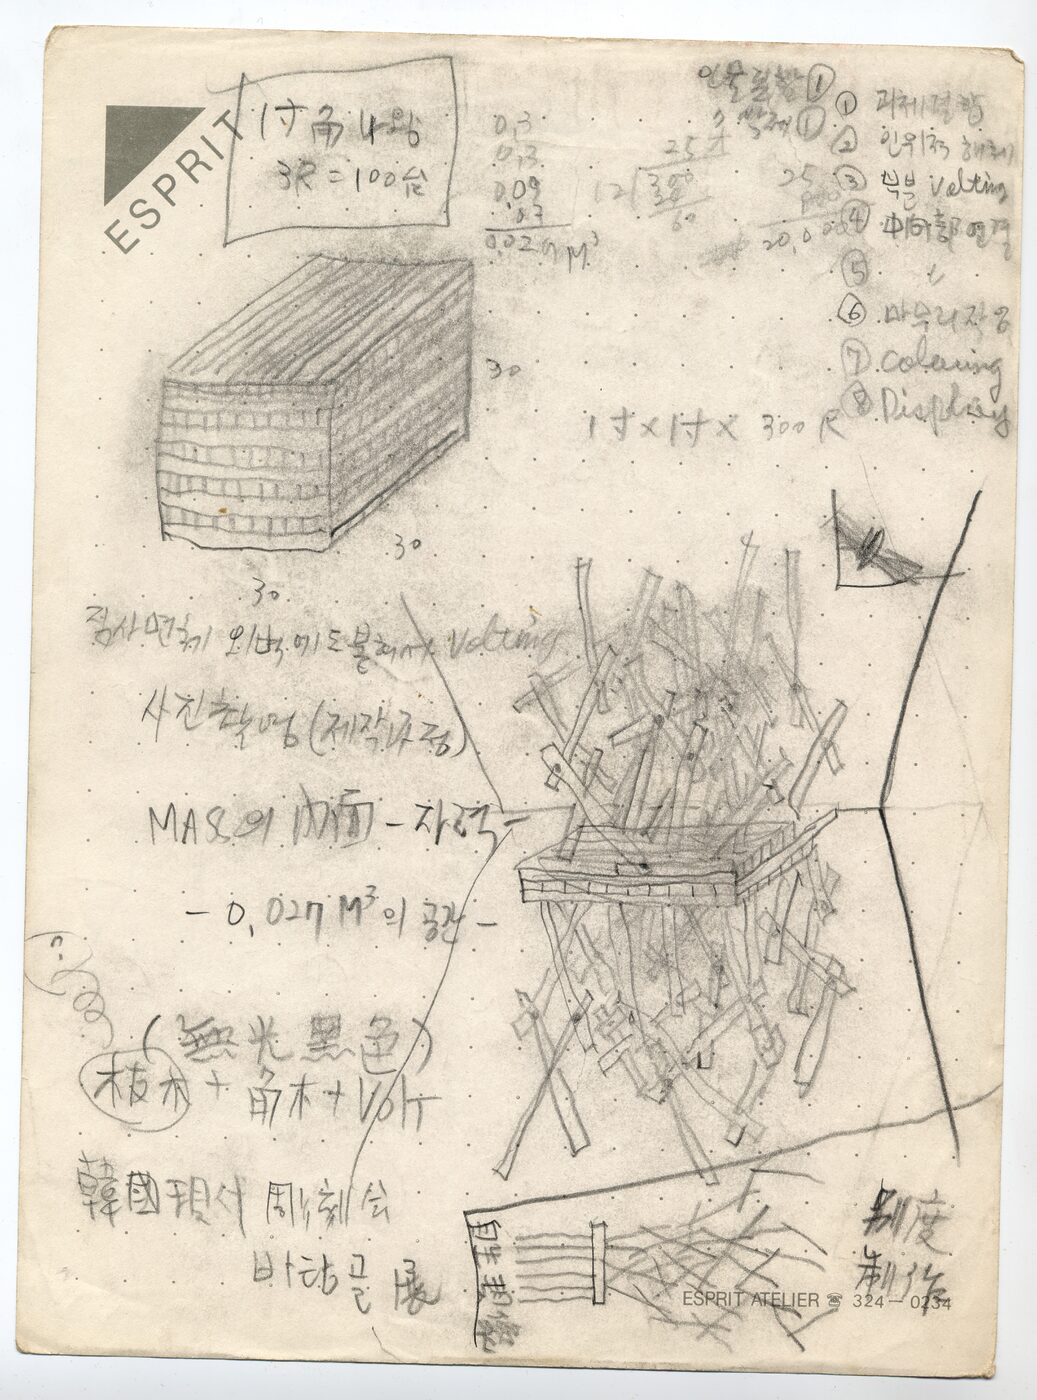 ESPRIT
1寸角
3R = 100台
0,3
0,3
0,09
0,3
0,027 M³
25
12 300
60
25
20,000
①
② 인위적 해체
③ 부분 Volting
④
⑤ 〃
⑥ 마무리작업
⑦ Colouring
⑧ Display
30
1寸×1寸× 300 R
30
30
외벽에도 불혀서 Volting
사진촬영(제작과정)
MASS의 內面 - 자력 -
- 0,027 M³의 공간 -
(無光黑色)
板木 + 角木 + Volt
韓國現代 彫刻会
바탕골 展
別度
制作
ESPRIT ATELIER ☎ 324-0234